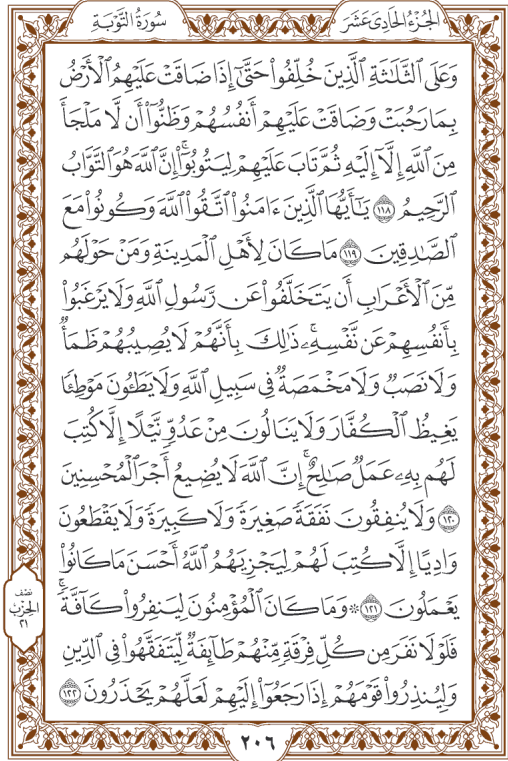 الجُزْءُ الحَادِي عَشَرَ
سُورَةُ التَّوْبَةِ
وَعَلَى ٱلثَّلَٰثَةِ ٱلَّذِينَ خُلِّفُوا۟ حَتَّىٰٓ إِذَا ضَاقَتْ عَلَيْهِمُ ٱلْأَرْضُ
بِمَا رَحُبَتْ وَضَاقَتْ عَلَيْهِمْ أَنفُسُهُمْ وَظَنُّوٓا۟ أَن لَّا مَلْجَأَ
مِنَ ٱللَّهِ إِلَّآ إِلَيْهِ ثُمَّ تَابَ عَلَيْهِمْ لِيَتُوبُوٓا۟ ۚ إِنَّ ٱللَّهَ هُوَ ٱلتَّوَّابُ
ٱلرَّحِيمُ ١١٨ يَٰٓأَيُّهَا ٱلَّذِينَ ءَامَنُوا۟ ٱتَّقُوا۟ ٱللَّهَ وَكُونُوا۟ مَعَ
ٱلصَّٰدِقِينَ ١١٩ مَا كَانَ لِأَهْلِ ٱلْمَدِينَةِ وَمَنْ حَوْلَهُم
مِّنَ ٱلْأَعْرَابِ أَن يَتَخَلَّفُوا۟ عَن رَّسُولِ ٱللَّهِ وَلَا يَرْغَبُوا۟
بِأَنفُسِهِمْ عَن نَّفْسِهِۦ ۚ ذَٰلِكَ بِأَنَّهُمْ لَا يُصِيبُهُمْ ظَمَأٌ
وَلَا نَصَبٌ وَلَا مَخْمَصَةٌ فِى سَبِيلِ ٱللَّهِ وَلَا يَطَـُٔونَ مَوْطِئًا
يَغِيظُ ٱلْكُفَّارَ وَلَا يَنَالُونَ مِنْ عَدُوٍّ نَّيْلًا إِلَّا كُتِبَ
لَهُم بِهِۦ عَمَلٌ صَٰلِحٌ ۚ إِنَّ ٱللَّهَ لَا يُضِيعُ أَجْرَ ٱلْمُحْسِنِينَ
١٢٠ وَلَا يُنفِقُونَ نَفَقَةً صَغِيرَةً وَلَا كَبِيرَةً وَلَا يَقْطَعُونَ
وَادِيًا إِلَّا كُتِبَ لَهُمْ لِيَجْزِيَهُمُ ٱللَّهُ أَحْسَنَ مَا كَانُوا۟
يَعْمَلُونَ ١٢١ ۞ وَمَا كَانَ ٱلْمُؤْمِنُونَ لِيَنفِرُوا۟ كَآفَّةً ۚ
فَلَوْلَا نَفَرَ مِن كُلِّ فِرْقَةٍ مِّنْهُمْ طَآئِفَةٌ لِّيَتَفَقَّهُوا۟ فِى ٱلدِّينِ
وَلِيُنذِرُوا۟ قَوْمَهُمْ إِذَا رَجَعُوٓا۟ إِلَيْهِمْ لَعَلَّهُمْ يَحْذَرُونَ ١٢٢
نصف
الحزب
٢١
٢٠٦